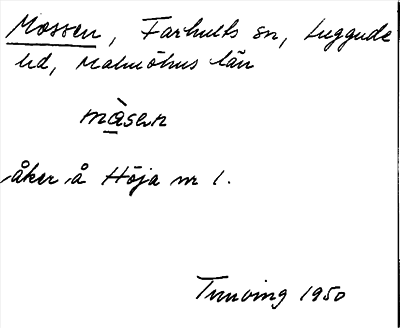 Mossen, Farhults sn, Luggude
hd, Malmöhus län
ma̠̒sen
åker å Höja nr 1.
1950